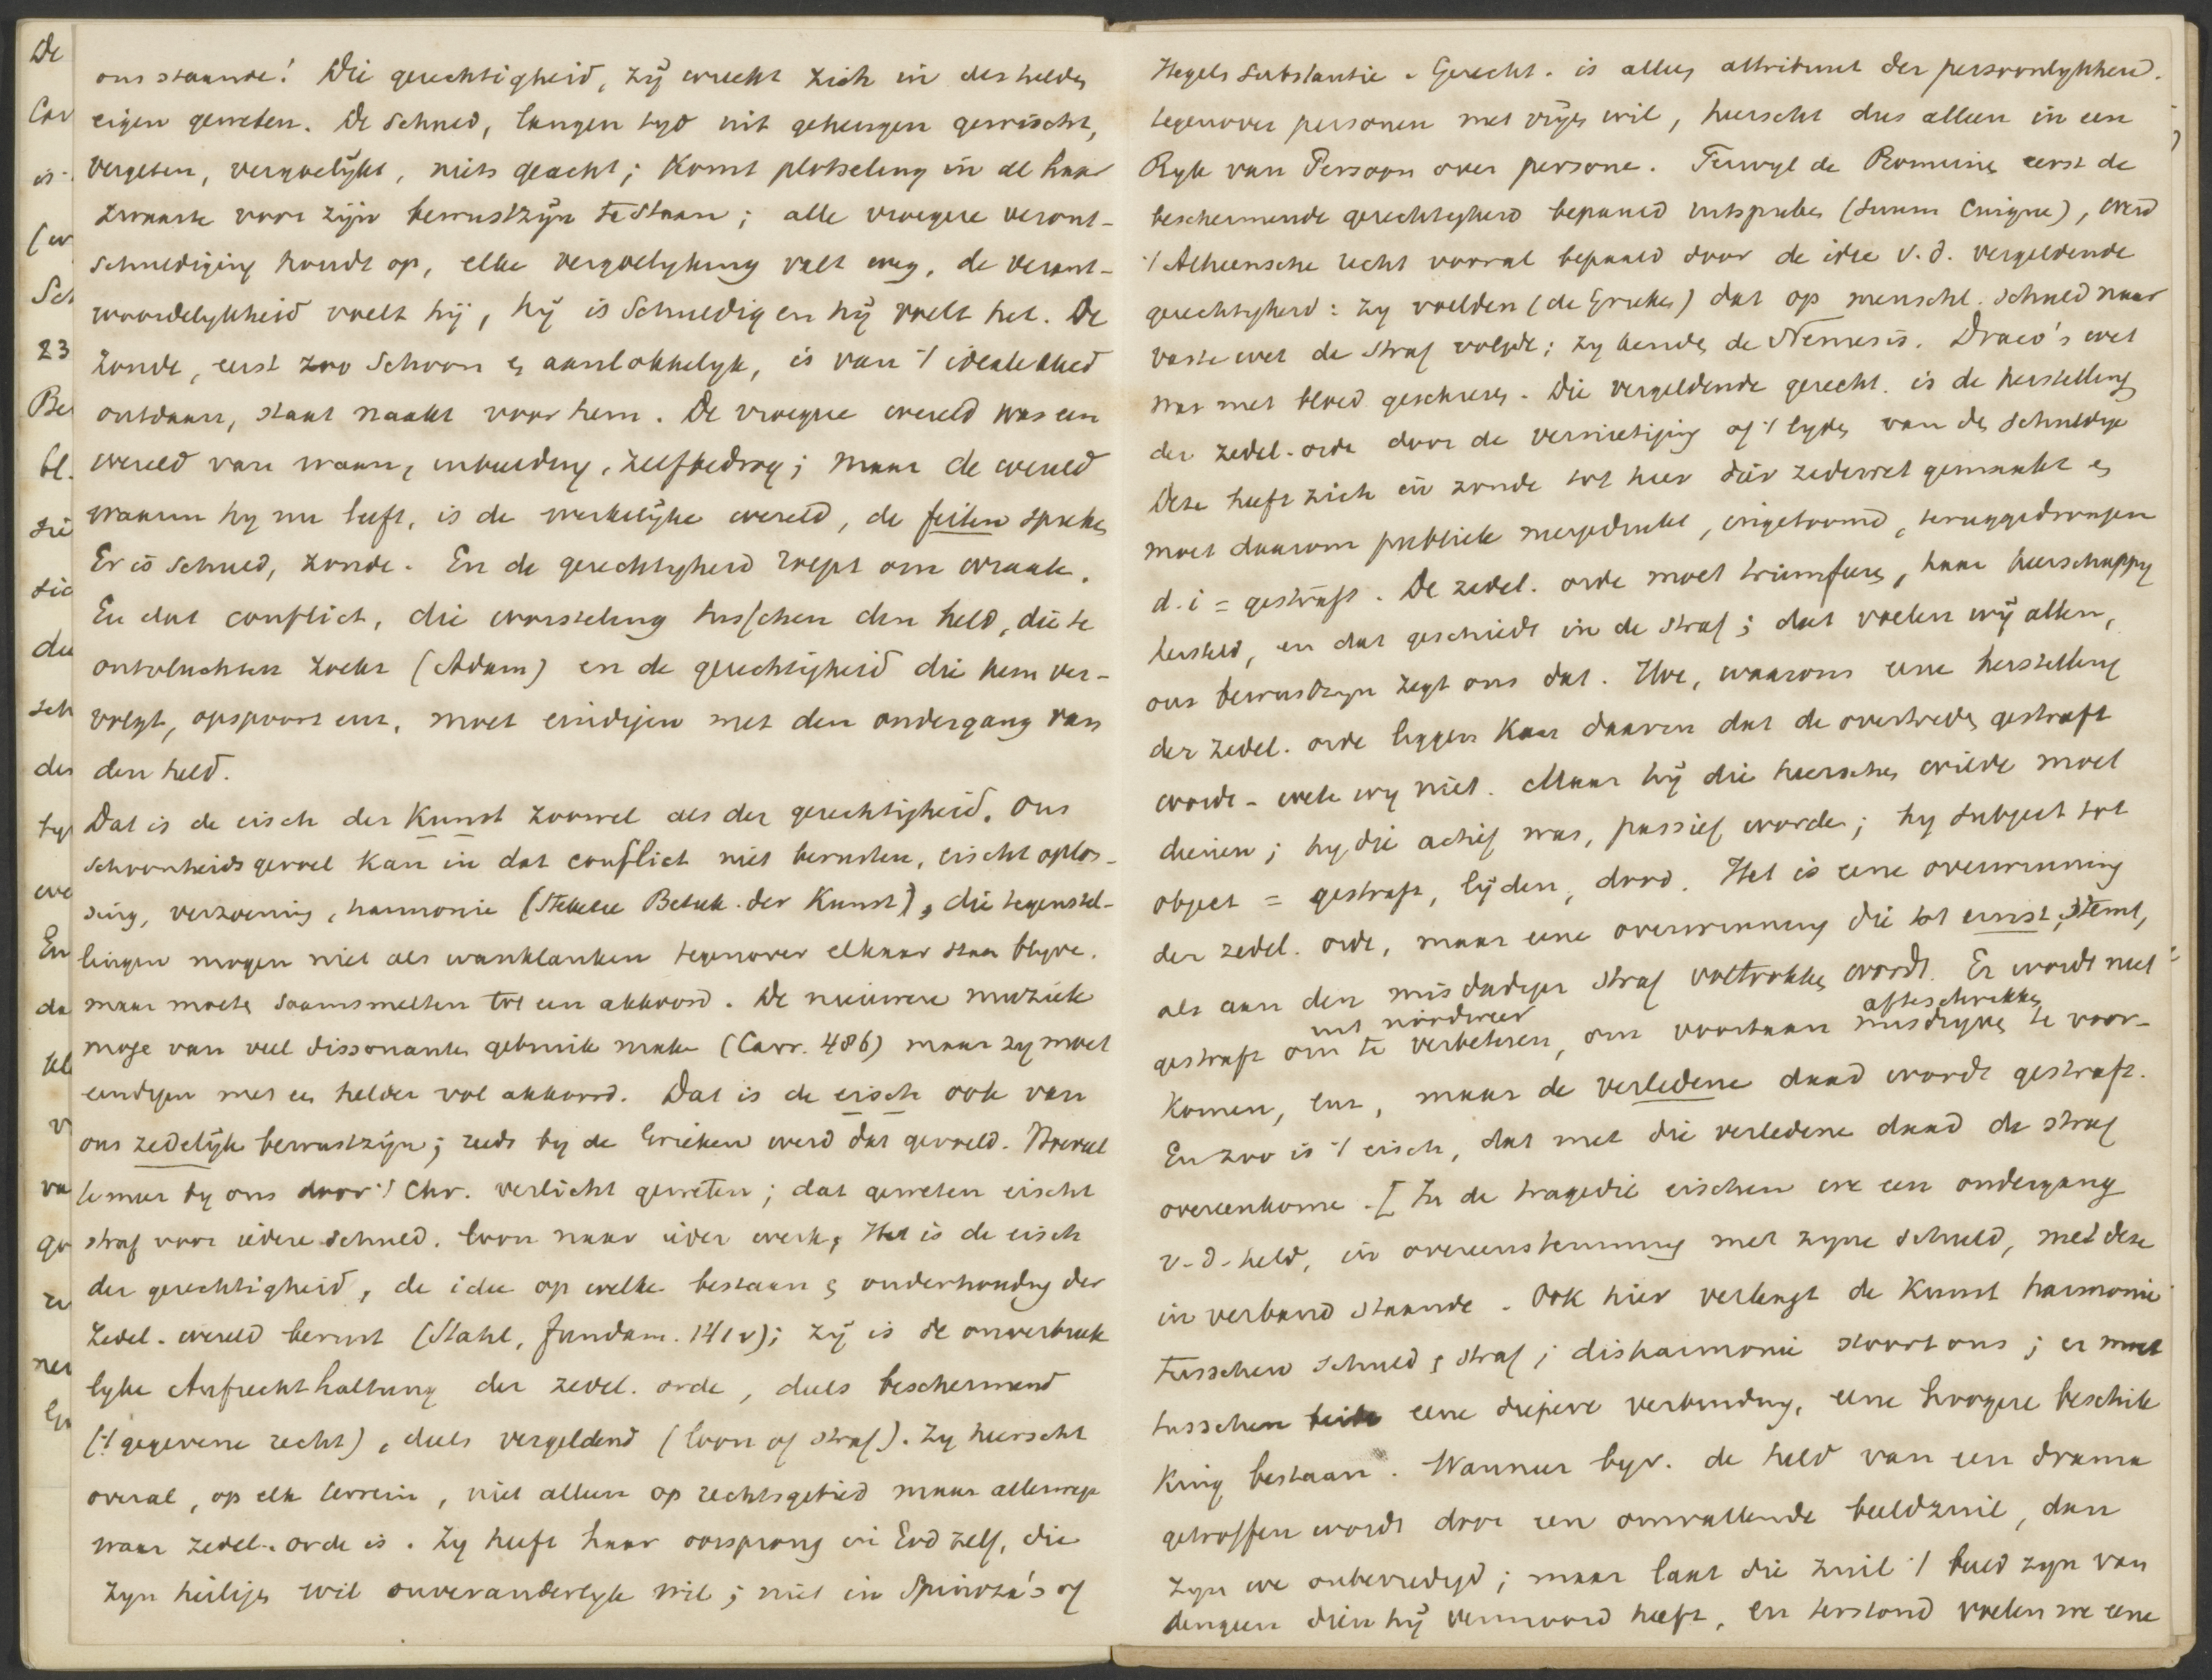 De
Car
is
(w
Sch
23
Be
bl.
die
sic
du
sch
des
typ
we
En
da
kl
v
va
go
ze
ner
En
ons staande! Die gerechtigheid, zij wreekt zich in des helden
eigen geweten. De schuld, langen tyd uit geheugen gewischt,
vergeten, vergoelijkt, niets geacht; komt plotseling in al haar
zwaarte voor zijn bewustzijn te staan; alle vroegere veront-
schuldiging houdt op, elke vergoelyking valt weg, de verant-
woordelykheid voelt hij, hij is schuldig en hij voelt het. De
zonde, eerst zoo schoon en aanlokkelyk, is van 't ideale kleed
ontdaan, staat naakt voor hem. De vroegere wereld was een
wereld van waan, inbeelding, zelfbedrog; maar de wereld
waarin hy nu leeft, is de werkelijke wereld, de feiten spreken
Er is schuld, zonde. En de gerechtigheid roept om wraak.
En dat conflict, die worsteling tusschen den held, die te
ontvluchten zoekt (Adam) en de gerechtigheid die hem ver-
volgt, opspoort enz. moet eindigen met den ondergang van
den held.
Dat is de eisch der Kunst zoowel als der gerechtigheid. Ons
schoonheidsgevoel kan in dat conflict niet berusten, eischt oplos-
sing, verzoening, harmonie (Betek. der Kunst), die tegenstel-
lingen mogen niet als wanklanken tegenover elkaar staan blyve.
maar moeten saamsmelten tot een akkoord. De nieuwere muziek
moge van veel dissonanten gebruik make (Carr. 486) maar zy moet
eindigen met een helder vol akkoord. Dat is de eisch ook van
ons zedelijk bewustzijn; reeds by de Grieken werd dat gevoeld. Hoeveel
te meer by ons door 't Chr. verlicht geweten; dat geweten eischt
straf voor iedere schuld. loon naar ieder werk, Het is de eisch
der gerechtigheid, de idee op welke bestaan en onderhouding der
Zedel. wereld berust (Stahl, Fundam. 141 v); zij is de onverbreek
lyke Aufrechthaltung der zedel. orde, deels beschermend
('t gegevene recht), deels vergeldend (loon of straf). Zy heerscht
overal, op elk terrein, niet alleen op rechtsgebied maar allerwege
waar zedel. orde is. Zy heeft haar oorsprong in God zelf, die
zyn heilige wil onveranderlyk wil; niet in Spinoza's of
Hegels Substantie. Gerecht. is alleen attribuut der persoonlykheid.
tegenover personen met vrije wil, heerscht dus alleen in een
Ryk van Persoon over persone. Terwyl de Romeinen eerst de
beschermende gerechtigheid bepaald uitspraken (suum cuique), werd
't Atheensche recht vooral bepaald door de idee v.d. vergeldende
gerechtigheid: zy voelden (de Grieken) dat op menschl. schuld naar
vaste wet de straf volgde; zy kenden de Nemesis. Draco's wet
was met bloed geschreven. Die vergeldende gerecht. is de herstelling
der zedel. orde door de vernietiging of 't lyden van den schuldige
Deze heeft zich in zonde tot heer der zedewet gemaakt en
moet daarom publiek neergedrukt, ingetoomd, teruggedrongen
d.i = gestraft. De zedel. orde moet triumferen, haar heerschappy
hersteld, en dat geschiedt in de straf; dat voelen wij allen,
ons bewustzyn zegt ons dat. Hoe, waarom eene herstelling
der zedel. orde liggen kan daarin dat de overtreder gestraft
wordt - weten wy niet. Maar hij die heerschen wilde moet
dienen; hy die actief was, passief worden; hy subject tot
object = gestraft, lijden, dood. Het is eene overwinning
der zedel. orde, maar eene overwinning die tot ernst stemt,
als aan den misdadiger straf voltrokken wordt. Er wordt niet
gestraft om te verbeteren, om voortaan misdryven te voor-
afteschrikken
komen, enz, maar de verledene daad wordt gestraft.
En zoo is 't eisch, dat met die verledene daad de straf
overeenkome. [In de tragedie eischen we een ondergang
v.d. held, in overeenstemming met zyne schuld, met deze
in verband staande. Ook hier verlangt de Kunst harmonie
tusschen schuld en straf; disharmonie stoort ons; er moet
tusschen beide eene diepere verbinding, eene hoogere beschik
king bestaan. Wanneer byv. de held van een drama
getroffen wordt door een omvallende beeldzuil, dan
zyn we onbevredigd; maar laat die zuil 't beeld zyn van
dengeen dien hij vermoord heeft, en terstond voelen we eene